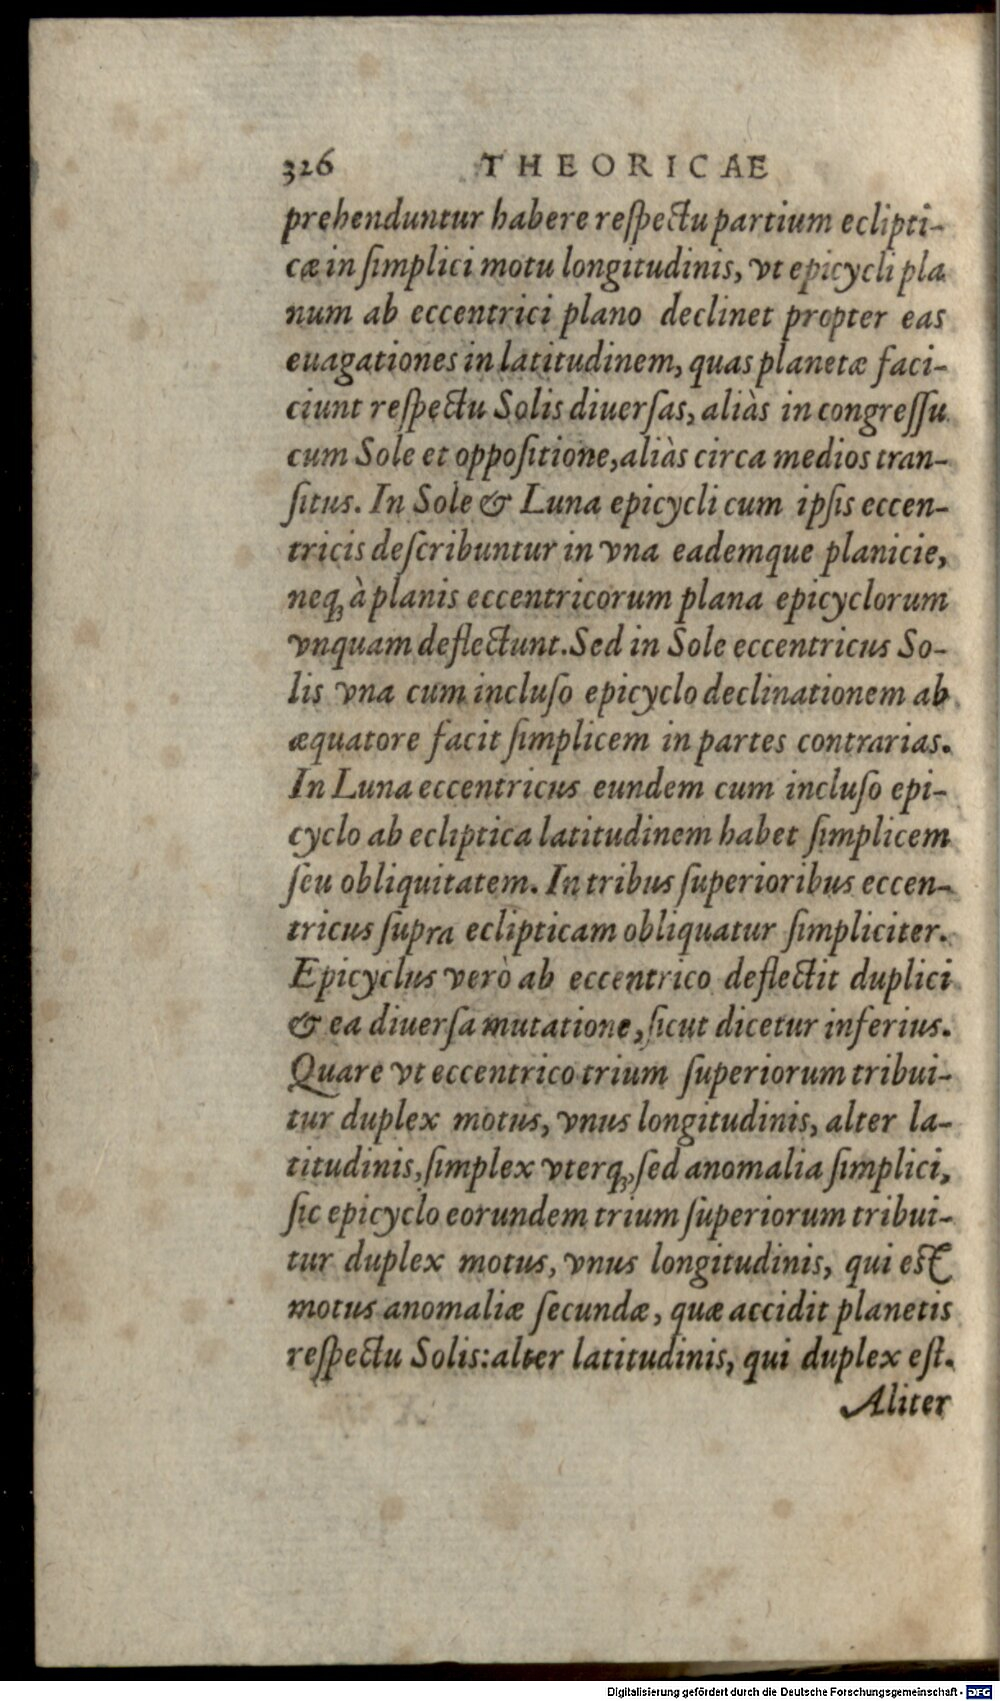 326 THEORICAE
prehenduntur habere reſpectu partium eclipti-
cæ in ſimplici motu longitudinis, vt epicycli pla
num ab eccentrici plano declinet propter eas
euagationes in latitudinem, quas planetæ faci-
ciunt reſpectu Solis diuerſas, aliàs in congreſſu
cum Sole et oppoſitione, aliàs circa medios tran-
ſitus. In Sole & Luna epicycli cum ipſis eccen-
tricis deſcribuntur in vna eademque planicie,
neqꝫ à planis eccentricorum plana epicyclorum
vnquam deflectunt. Sed in Sole eccentricus So-
lis vna cum incluſo epicyclo declinationem ab
æquatore facit ſimplicem in partes contrarias.
In Luna eccentricus eundem cum incluſo epi-
cyclo ab ecliptica latitudinem habet ſimplicem
ſeu obliquitatem. In tribus ſuperioribus eccen-
tricus ſupra eclipticam obliquatur ſimpliciter.
Epicyclus verò ab eccentrico deflectit duplici
& ea diuerſa mutatione, ſicut dicetur inferius.
Quare vt eccentrico trium ſuperiorum tribui-
tur duplex motus, vnus longitudinis, alter la-
titudinis, ſimplex vterqꝫ, ſed anomalia ſimplici,
ſic epicyclo eorundem trium ſuperiorum tribui-
tur duplex motus, vnus longitudinis, qui eſt
motus anomaliæ ſecundæ, quæ accidit planetis
reſpectu Solis: alter latitudinis, qui duplex eſt.
Aliter
Digitalisierung gefördert durch die Deutsche Forschungsgemeinschaft - DFG